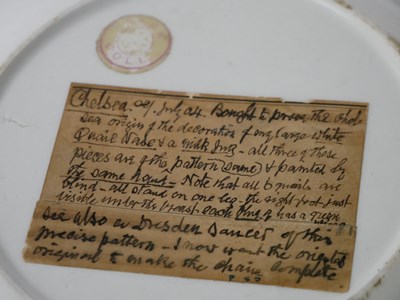 COLL
Chelsea. July 24. Bought to prove the Chel-
sea origin of the decoration of my large white
Quail Vase & a milk Jug - all three of these
pieces are of the pattern (same) & painted by
the same hand - Note that all birds are
- all stand on one leg - the right foot just
visible under the breast each has a
See also a Dresden Saucer of this
precise pattern - I now want the oriental
original to make the chain complete